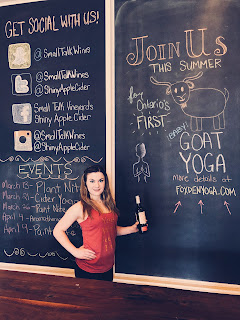 GET SOCIAL WITH US!
@SmallTalkWines
@SmallTalkWines
@ShinyAppleCider
Small Talk Vineyards
Shiny Apple Cider
@SmallTalkWines
@ShinyAppleCider
EVENTS
March 13 - Plant Nit
Cider Yoga
Paint Nite
April 4
April 9 - Paint
JOIN US
THIS SUMMER
for
Ontario's
FIRST
(BABY)
GOAT
YOGA
more details at
FOXDENYOGA.COM